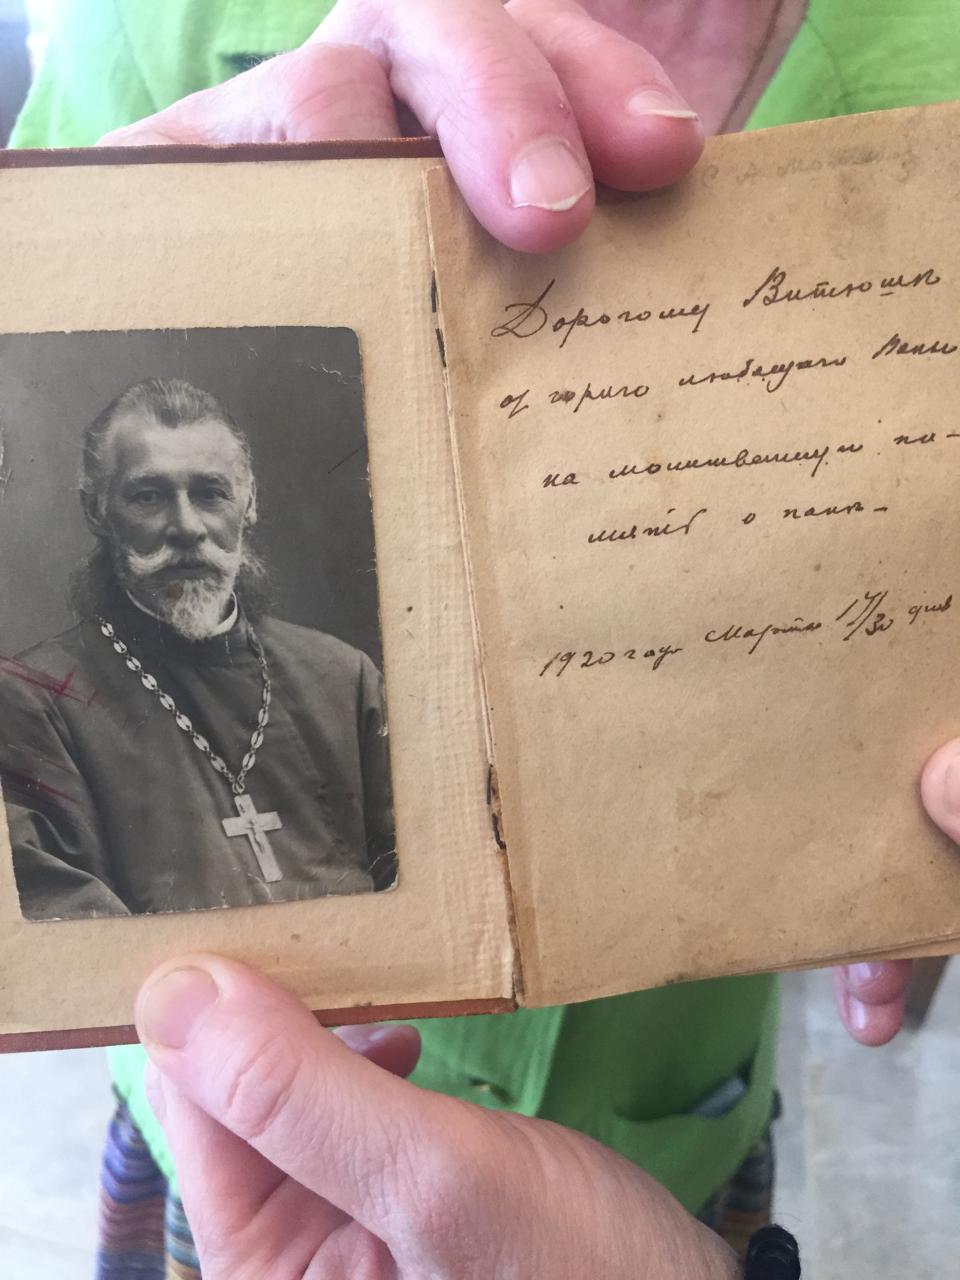 Дорогому Витюшѣ
отъ горячо любящаго Папы
на молитвенную па-
мять о папѣ.
1920 года Марта 17/30 дня